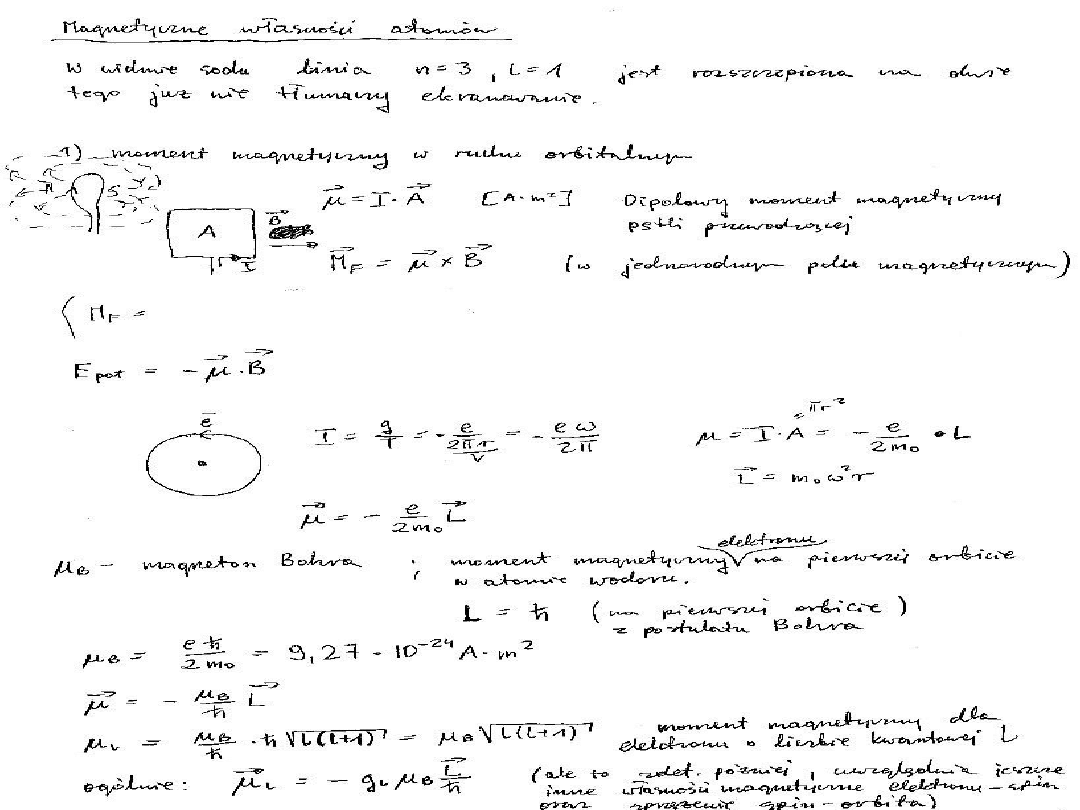 Magnetyczne własności atomów
W widmie sodu linia n=3, l=1 jest rozszczepiona na dwie
tego już nie tłumaczy ekranowanie.
1) moment magnetyczny w ruchu orbitalnym
N S
A
B⃗
I
μ⃗ = I · A⃗ [A·m²] Dipolowy moment magnetyczny
pętli przewodzącej
M⃗_F = μ⃗ × B⃗ (w jednorodnym polu magnetycznym)
( M_F =
E_pot = - μ⃗ · B⃗
e⁻
I = q/T = - e/(2πr/v) = - eω/2π
μ = I · A = - e/2m₀ · L
= πr²
L⃗ = m₀ω²r
μ⃗ = - e/2m₀ L⃗
μ_B - magneton Bohra ; moment magnetyczny elektronu na pierwszej orbicie
w atomie wodoru.
L = ħ (na pierwszej orbicie)
z postulatu Bohra
μ_B = eħ/2m₀ = 9,27 · 10⁻²⁴ A·m²
μ⃗ = - μ_B/ħ L⃗
μ_l = μ_B/ħ · ħ √(l(l+1)) = μ_B √(l(l+1)) moment magnetyczny dla
elektronu o liczbie kwantowej l
ogólnie: μ⃗_l = - g_l μ_B L⃗/ħ (ale to później, uwzględnia jeszcze
inne własności magnetyczne elektronu - spin
oraz sprzężenie spin-orbita)